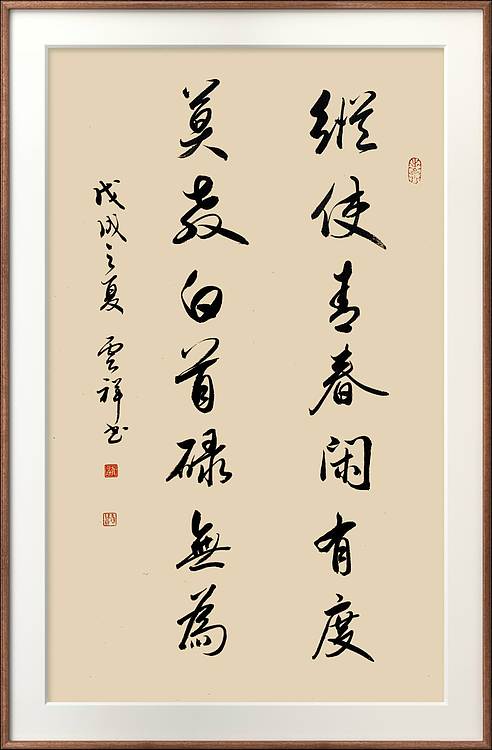 縱使青春閑有度
莫教白首碌無為
戊戌之夏 雲祥书